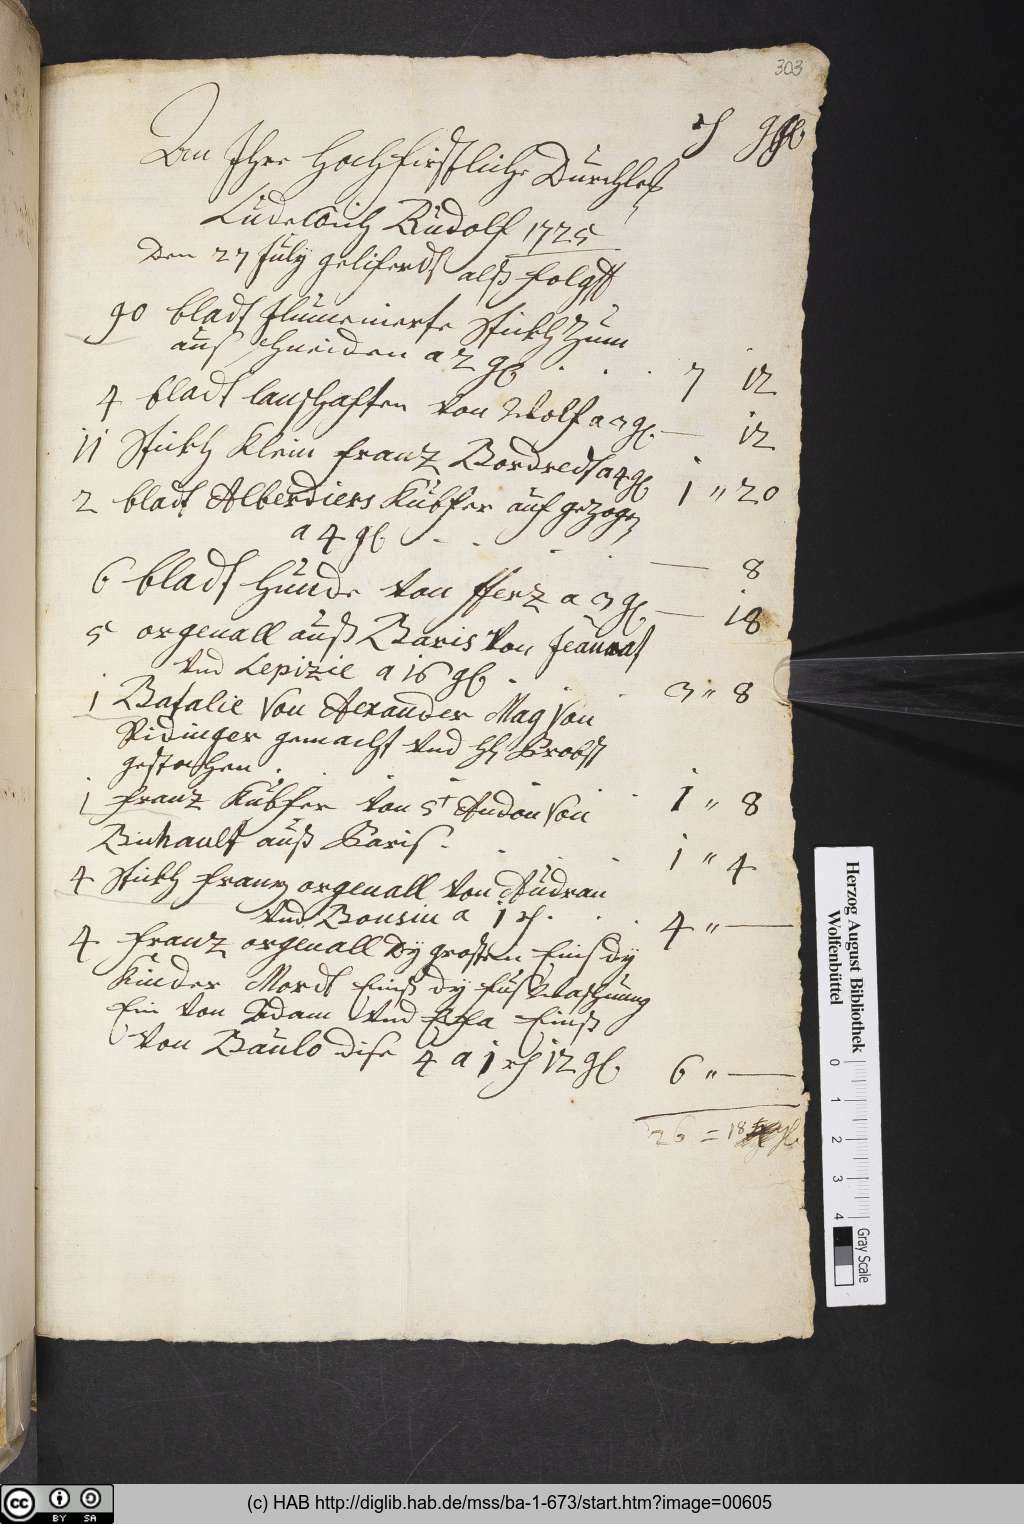 303
rh ggl
An Ihre Hochfirstliche Durchleist
Ludewich Rudolf 1725
Den 27 July geliferdt alß folgtt
90 bladt Illumenierte Stickh Zum
auß schneiden a 2 gl . . . 7 12
4 bladt lanshafften Von Wolf a 3 gl — 12
11 Stickh Klein franz Bordreds a 4 gl 1 " 20
2 bladt Alberdiers Kubfer auf gezogen
a 4 gl - - - - — 8
6 bladt Hunde Von a 3 gl — 18
5 orgenall auß Baris Von Jeaurat
Vnd Lepizie a 16 gl . . . 3 " 8
1 Batalie Von Alexander Mag Von
Ridinger gemacht Vnd hh Probst
gestochen . . . . . . 1 " 8
1 franz Kubfer Von St Andon Von
auß Baris . . . . 1 " 4
4 Stickh franz orgenall Von Audran
Vnd Bousin a 1 rh . . . 4 " —
4 franz orgenall Dy grosten Eins dy
Kinder Mordt Einß dy fuß Waschung
Ein Von Adam Vnd Efa Einß
Von Baulo dise 4 a 1 rh 12 gl 6 " —
26 = 18 gl
Herzog August Bibliothek
Wolfenbüttel
0 1 2 3 4
Gray Scale
cc BY SA
(c) HAB http://diglib.hab.de/mss/ba-1-673/start.htm?image=00605